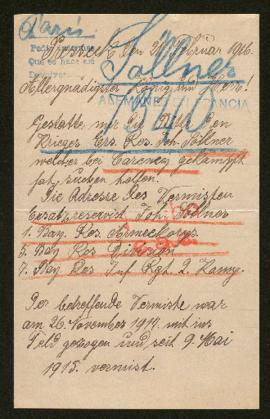 París
Sollner
Presseck den 21. Februar 1916.
Allergnädigster König und Herr!
ALEMANIA FRANCIA
Gestatte mir die Bitte den
Krieger Ers. Res. Joh. Söllner
welcher bei Carency gekämpft
hat suchen lassen.
Die Adresse des Vermissten
Ersatzreservist Joh. Söllner
1. Bay. Res. Armeekorps
5. Bay Res Division
7. Bay Res Inf Rgt 2. Komp.
Der betreffende Vermisste war
am 26. November 1914 mit ins
Feld gezogen und seit 9. Mai
1915. vermisst.